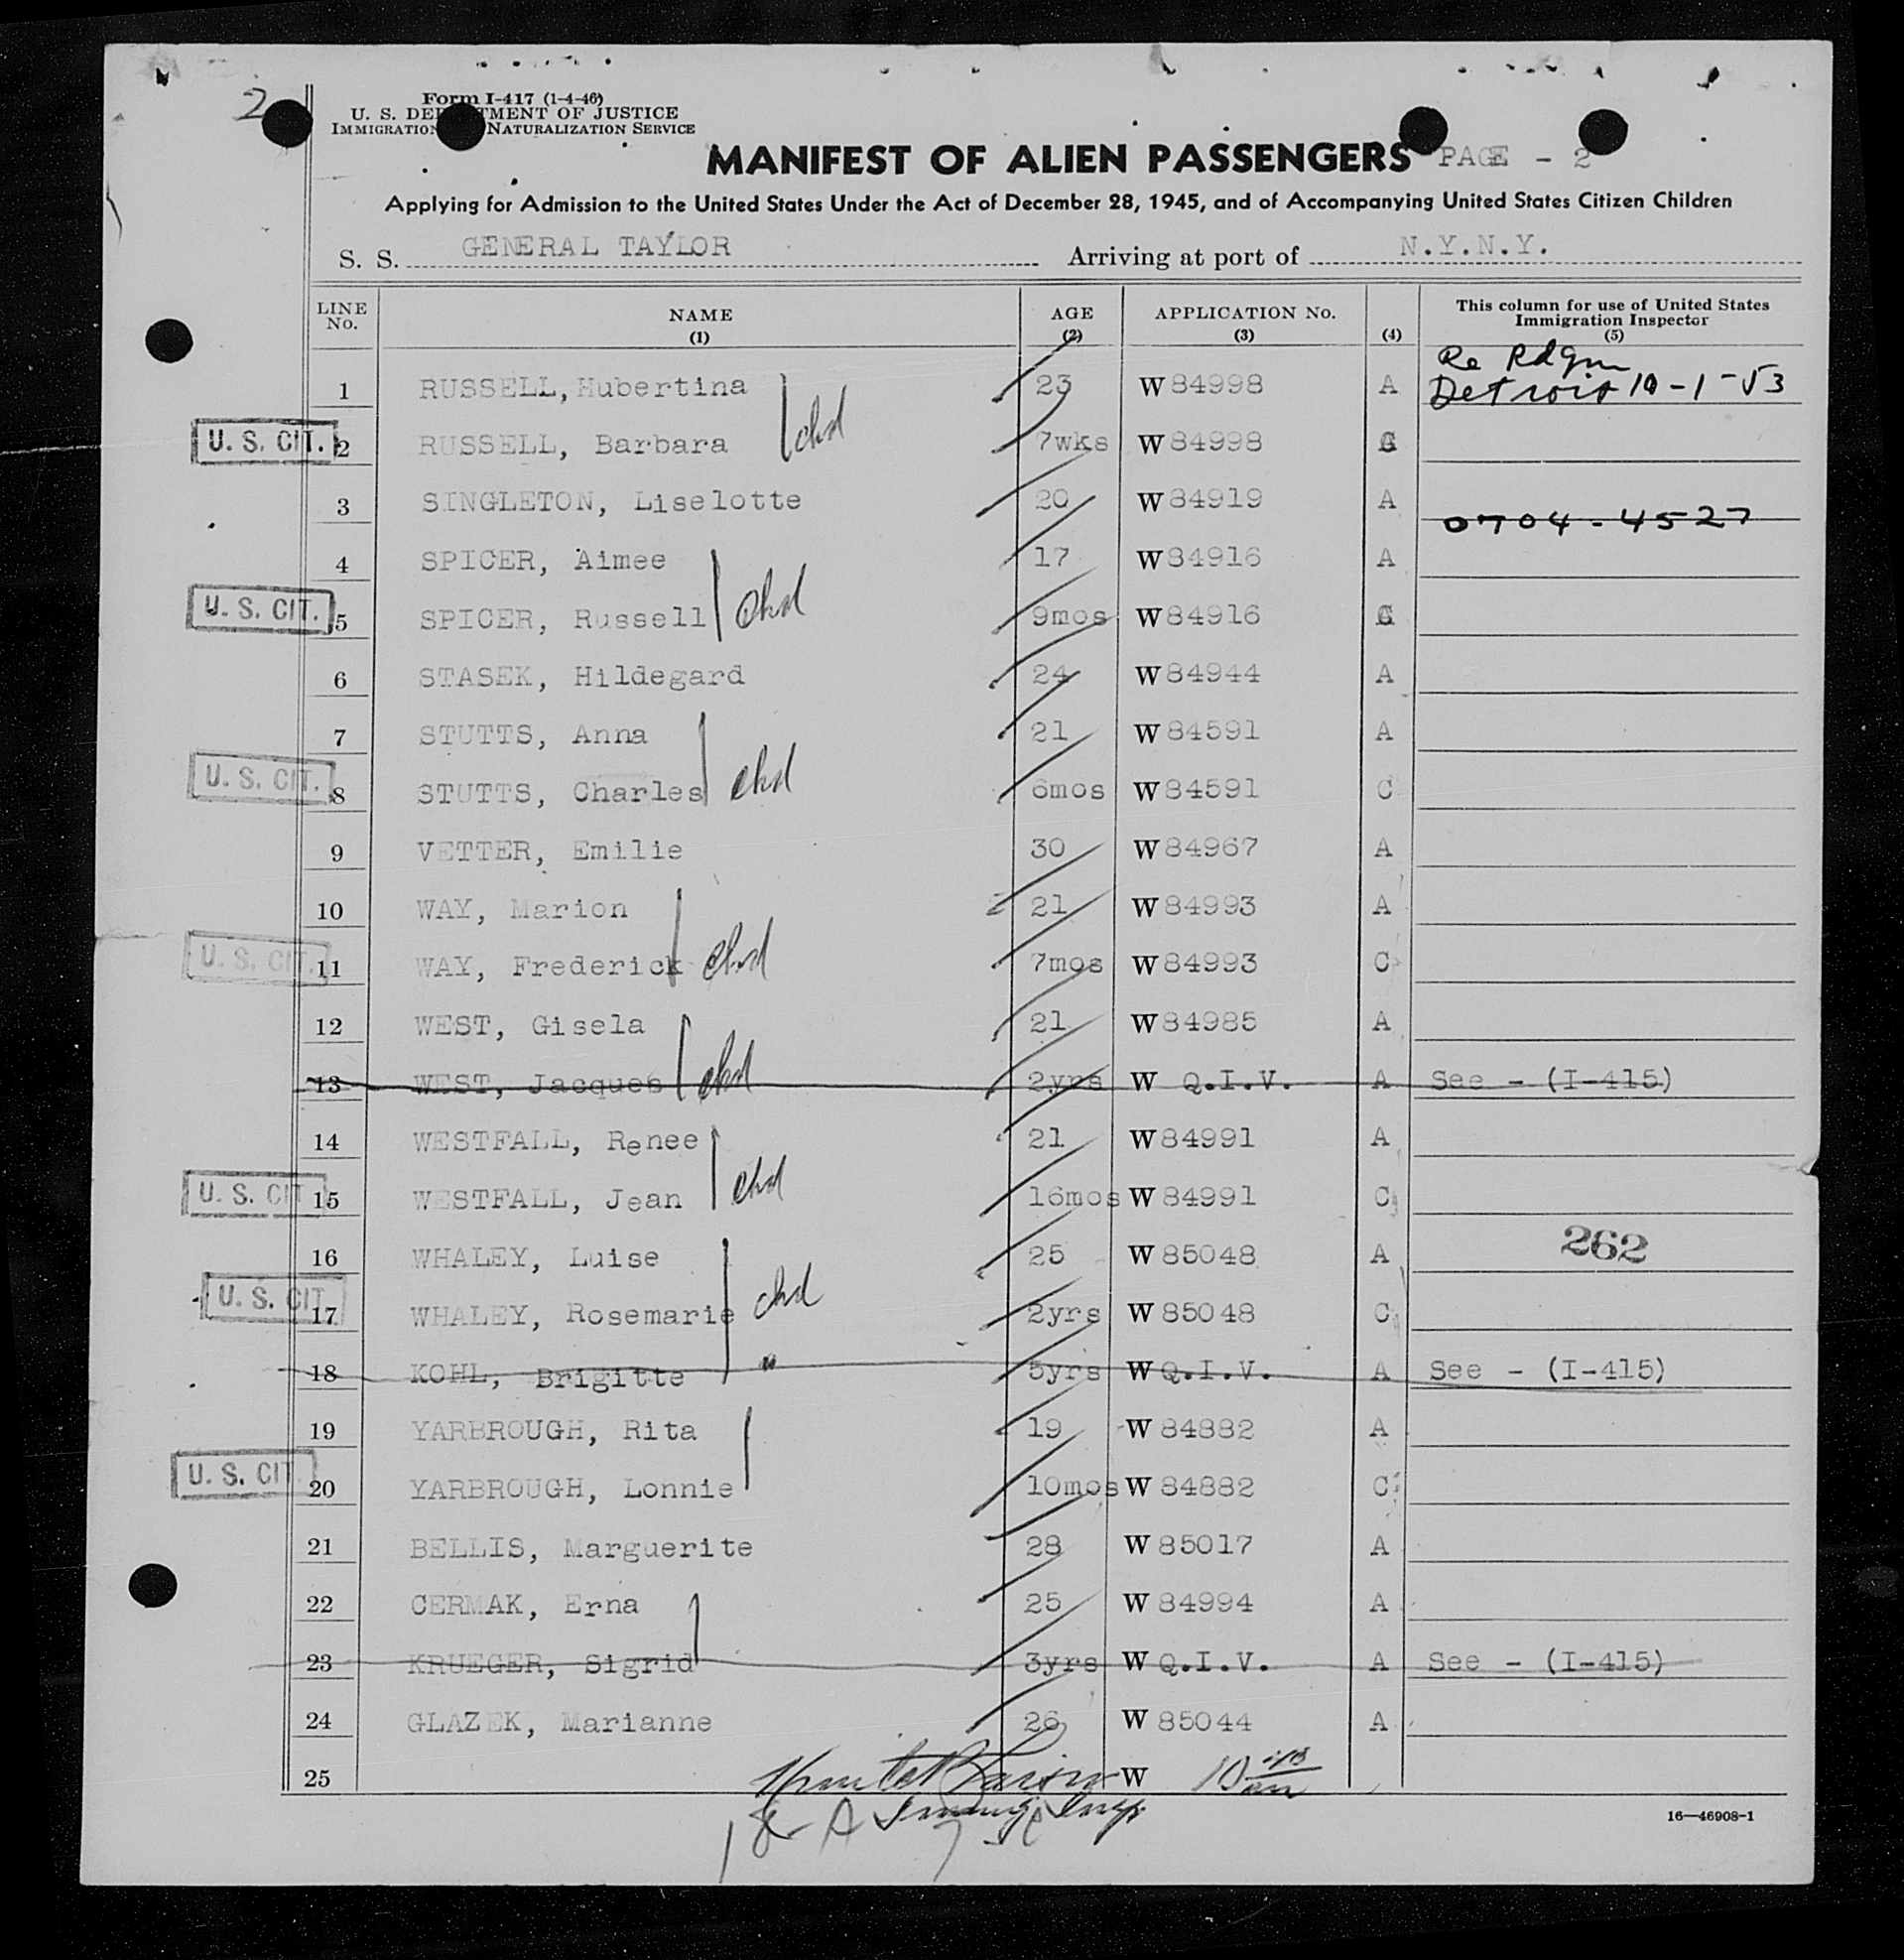 2
Form I-417 (1-4-46)
U. S. DEP TMENT OF JUSTICE
IMMIGRATION NATURALIZATION SERVICE
MANIFEST OF ALIEN PASSENGERS PAGE - 2
Applying for Admission to the United States Under the Act of December 28, 1945, and of Accompanying United States Citizen Children
S. S. GENERAL TAYLOR Arriving at port of N.Y.N.Y.
LINE No. NAME (1) AGE (2) APPLICATION No. (3) (4) This column for use of United States Immigration Inspector (5)
Re Rdgm
1 RUSSELL, Hubertina 23 W 84998 A Detroit 10-1-53
U. S. CIT. 2 RUSSELL, Barbara chd 7wks W 84998 C
3 SINGLETON, Liselotte 20 W 84919 A
0704-4527
4 SPICER, Aimee 17 W 84916 A
U. S. CIT. 5 SPICER, Russell chd 9mos W 84916 C
6 STASEK, Hildegard 24 W 84944 A
7 STUTTS, Anna 21 W 84591 A
U. S. CIT. 8 STUTTS, Charles chd 6mos W 84591 C
9 VETTER, Emilie 30 W 84967 A
10 WAY, Marion 21 W 84993 A
U. S. CIT. 11 WAY, Frederick chd 7mos W 84993 C
12 WEST, Gisela 21 W 84985 A
13 WEST, Jacques chd 2yrs W Q.I.V. A See - (I-415)
14 WESTFALL, Renee 21 W 84991 A
U. S. CIT 15 WESTFALL, Jean chd 16mos W 84991 C
262
16 WHALEY, Luise 25 W 85048 A
U. S. CIT. 17 WHALEY, Rosemarie chd 2yrs W 85048 C
18 KOHL, Brigitte " 5yrs W Q.I.V. A See - (I-415)
19 YARBROUGH, Rita 19 W 84882 A
U. S. CIT 20 YARBROUGH, Lonnie 10mos W 84882 C
21 BELLIS, Marguerite 28 W 85017 A
22 CERMAK, Erna 25 W 84994 A
23 KRUEGER, Sigrid 3yrs W Q.I.V. A See - (I-415)
24 GLAZEK, Marianne 26 W 85044 A
25 W
Immig Insp
16—46908-1